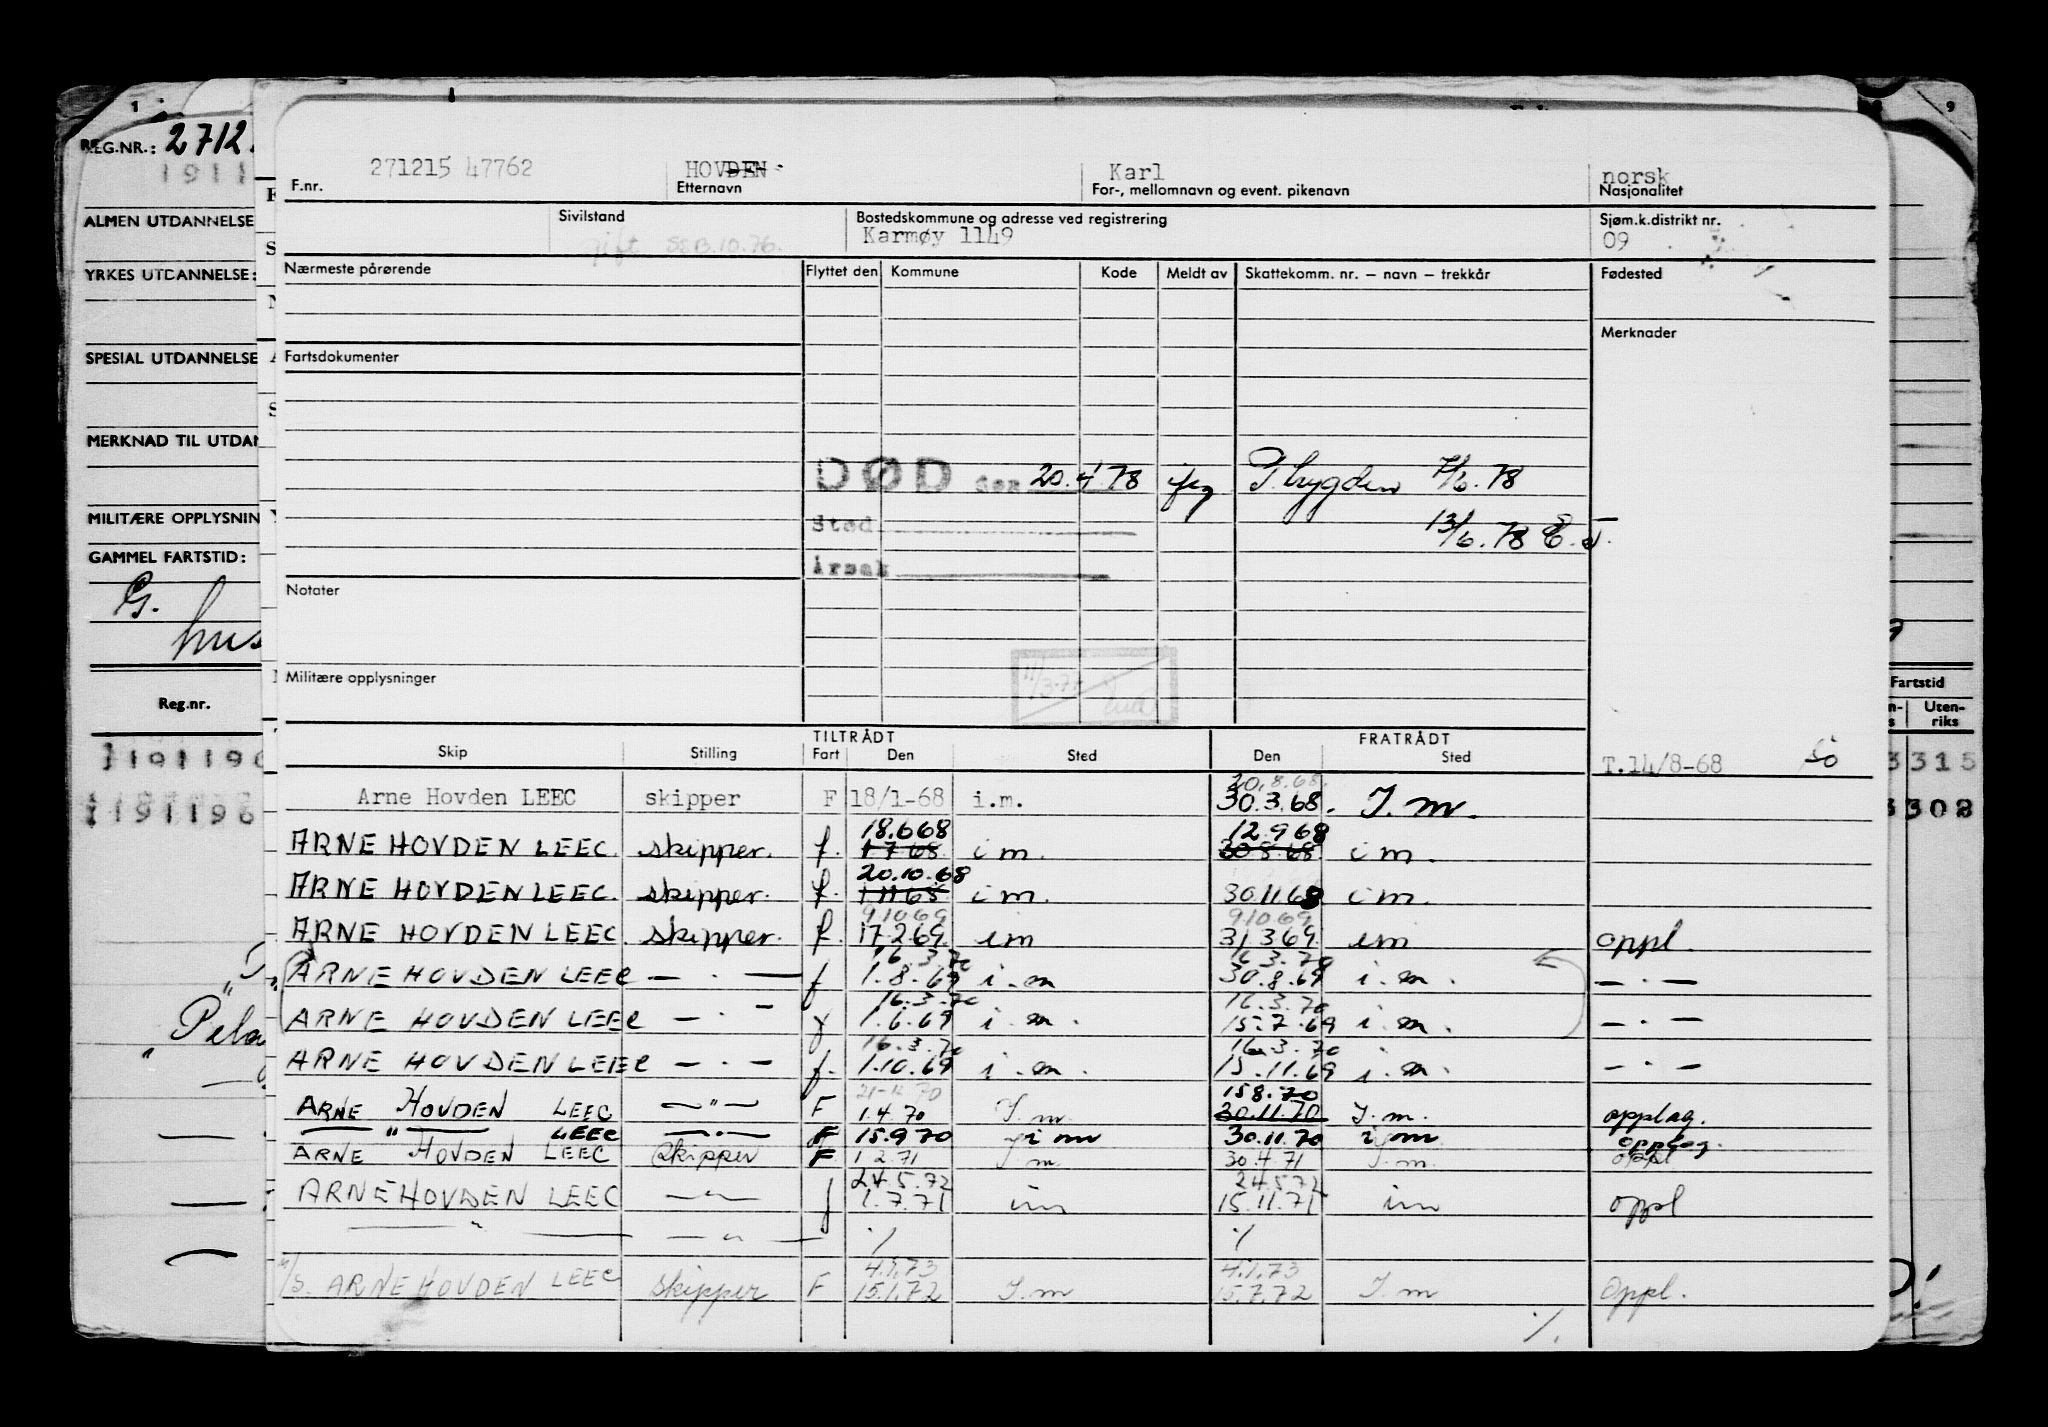 1
9
REG.NR.: 2712
1911
ALMEN UTDANNELSE
YRKES UTDANNELSE:
SPESIAL UTDANNELSE
MERKNAD TIL UTDAN
MILITÆRE OPPLYSNIN
GAMMEL FARTSTID:
G.
hus
Reg.nr.
Pela
271215 47762 HOVDEN Karl norsk
F.nr. Etternavn For-, mellomnavn og event. pikenavn Nasjonalitet
Sivilstand Bostedskommune og adresse ved registrering Sjøm.k.distrikt nr.
gift SSB.10.76. Karmøy 1149 09
Nærmeste pårørende Flyttet den Kommune Kode Meldt av Skattekomm. nr. — navn — trekkår Fødested
Merknader
Fartsdokumenter
DØD den 20.4.78 T.trygden 7/6.78
Sted 13/6.78 E.J.
Årsak
Notater
Militære opplysninger
Fartstid
Uten-
riks
TILTRÅDT FRATRÅDT
Skip Stilling Fart Den Sted Den Sted
T.14/8-68
3315
3302
20.8.68.
Arne Hovden LEEC skipper F 18/1-68 i.m. 30.3.68. I.m.
18.668 12.968
ARNE HOVDEN LEEC. skipper. f. 1 7 68 i m. 30 8 68 i m.
20.10.68
ARNE HOVDEN LEEC. skipper. f. 1 11 68 i m. 30.11.68 i m.
91069 91069
ARNE HOVDEN LEEC. skipper. f. 17.2.69. i m 31 3 69. i m oppl.
16.3.70 16.3.70
ARNE HOVDEN LEEC — . — f 1.8.69 i.m 30.8.69 i.m. — . —
16.3.70 16.3.70
ARNE HOVDEN LEEC — . — f 1.6.69 i.m. 15.7.69 i.m. — . —
16.3.70 16.3.70
ARNE HOVDEN LEEC — . — f. 1.10.69 i.m. 15.11.69 i.m. — . —
158.70
ARNE HOVDEN LEEC —"— F 1.4.70 I.m. 30.11.70 I.m. opplag.
— " — LEEC — . — F 15.9 70 i m 30.11.70 i m opplag.
ARNE HOVDEN LEEC Skipper F 1 2.71 I m. 30.4.71 I.m. oppl
24.5.72 24.5.72
ARNE HOVDEN LEEC —"— f 1.7.71 im 15.11.71 im oppl
— " — — " — ./. ./.
4.1.73 4.1.73
M/S. ARNE HOVDEN LEEC skipper F 15.1.72 I.m 15.7.72 I.m oppl.
./.